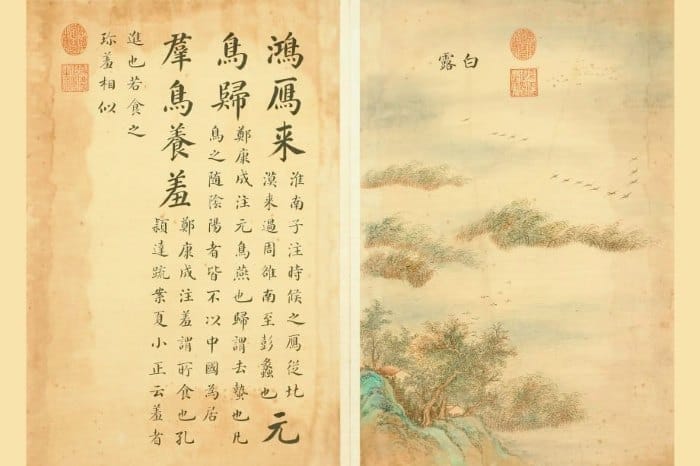 白露
鴻鴈来
淮南子注時候之鴈從北
漠来過周雒南至彭蠡也
元
鳥歸
鄭康成注元鳥燕也歸謂去蟄也凡
鳥之隨陰陽者皆不以中國為居
羣鳥養羞
鄭康成注羞謂所食也孔
頴達疏案夏小正云羞者
進也若食之
珎羞相似